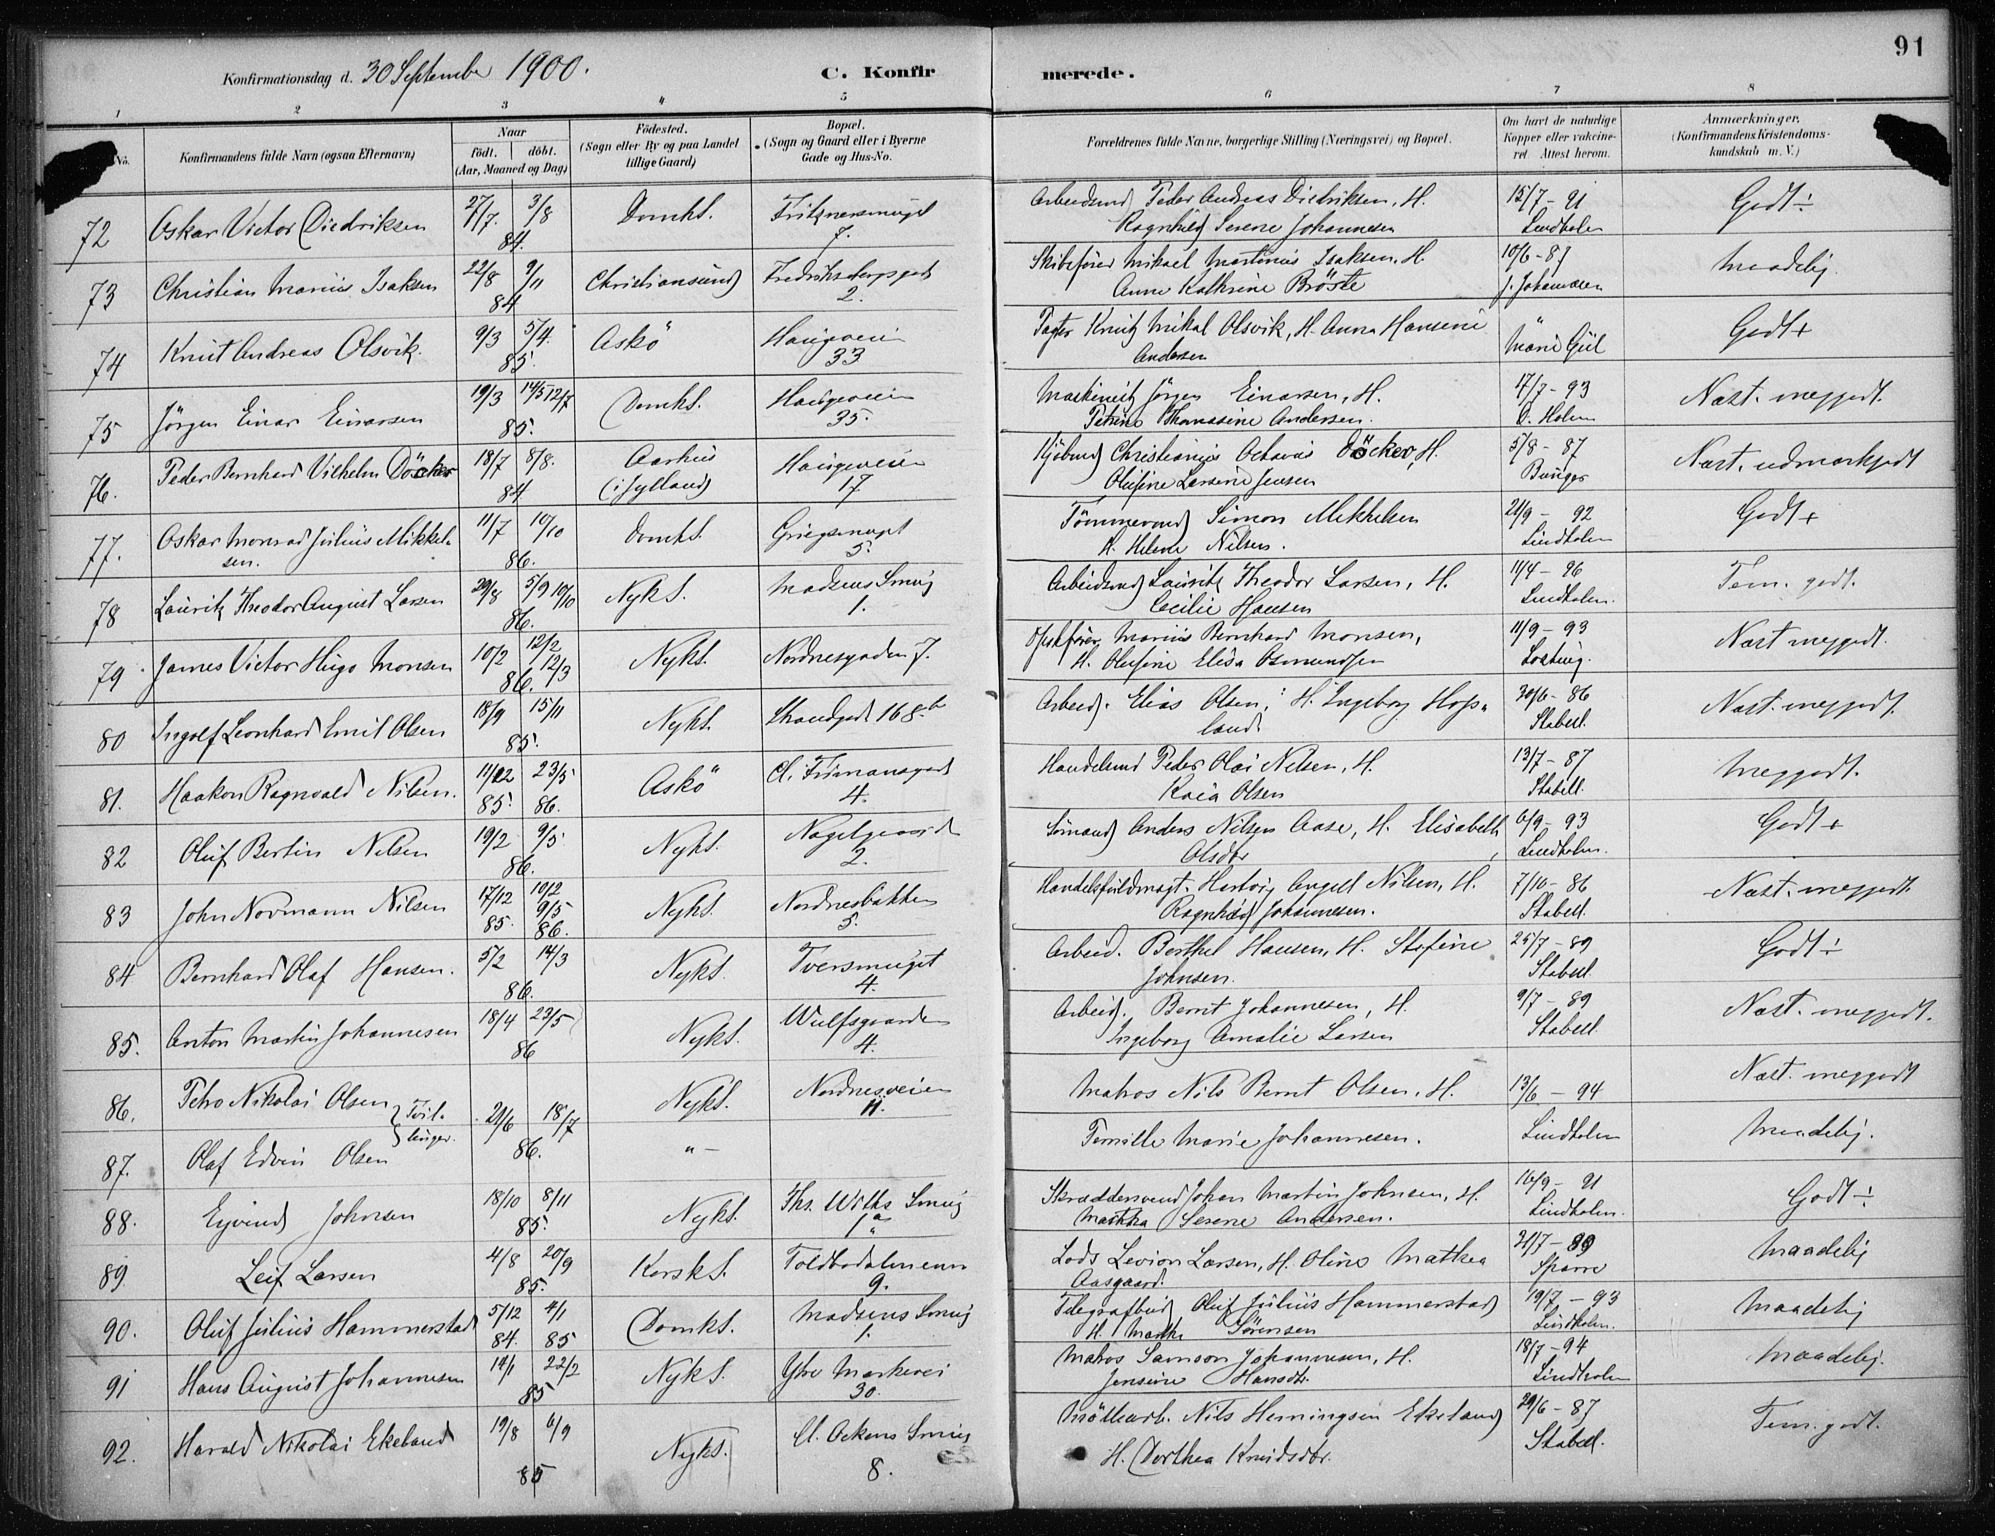 91
Konfirmationsdag d. 30 September 1900.
C. Konfirmerede.
1 2 3 4 5 6 7 8
No.
Konfirmandens fulde Navn (ogsaa Efternavn)
Naar
födt. döbt.
(Aar, Maaned og Dag)
Födested.
(Sogn eller By og paa Landet
tillige Gaard)
Bopæl.
(Sogn og Gaard eller i Byerne
Gade og Hus-No.
Forældrenes fulde Navne, borgerlige Stilling (Næringsvei) og Bopæl.
Om havt de naturlige
Kopper eller vakcine-
ret. Attest herom.
Anmærkninger.
(Konfirmandens Kristendoms-
kundskab m. V.)
72 Oskar Victor Diedriksen 27/7. 3/8 84. Domks. Fritznersmuget 7. Arbeidsmd Peder Andreas Diedriksen, H. Ragnhild Serene Johannesen 15/7 - 91 Lindholm Godt ÷
73 Christian Marius Isaksen 22/8 9/11 84 Christiansund Fredriksbergsgt 2. Skibsfører Mikael Martinus Isaksen, H. Anne Kathrine Bröste 10/6 - 87 J. Johannesen Maadelig.
74 Knut Andreas Olsvik. 9/3 5/4. 85. Askö Haugeveien 33 Knut Mikal Olsvik, H. Anna Hansine Andersen " Marie Giil Godt +
75 Jörgen Einar Einarsen 19/3 14/5 12/7 85. Domks. Haugeveien 35. Maskinist Jörgen Einarsen, H. Petrine Thomasine Andersen. 17/7 - 93 D. Holm Næst. meggodt.
76. Peder Bernhard Vilhelm Döcker 18/7 8/8. 84 Aarhus (i Jylland) Haugeveien 17 Kjöbmd Christianus Octavius Döcker, H. Olufine Larsine Jensen 5/8 - 87 Bünger Næst. udmærkgodt
77. Oskar Monrad Julius Mikkelsen. 11/7 10/10 86. Domks. Griegsmuget 5. Tömmermd Simon Mikkelsen H. Helene Nilsen. 21/9 - 92 Lindholm Godt +
78 Lauritz Theodor August Larsen 29/8 5/9 10/10 86. Nyks. Madsens Smug 1. Arbeidsmd Lauritz Theodor Larsen, H. Cecilie Hansen 11/4 - 96 Lindholm. Tem. godt.
79. James Victor Hugo Monsen 10/2 12/2 12/3 86. Nyks. Nordnesgaden 7. Marius Bernhard Monsen, H. Olufine Elisa Osmundsen 11/9 - 93 Næst meggodt.
80 Ingolf Leonhard Emil Olsen 18/9 15/11 85. Nyks. Strandgat 168 b Arbeid. Elias Olsen, H. Ingeborg Hopland. 20/6 - 86 Stabell. Næst. meggodt.
81. Haakon Ragnvald Nilsen. 11/12 85. 23/5 86. Askö Cl. Frimansgat 4. Handelsmd Peder Olai Nilsen, H. Kaia Olsen 13/7 - 87 Stabell. Meggodt.
82 Oluf Bertin Nilsen 19/2 9/5. 86. Nyks. Nagelgaard 2. Sömand Anders Nilsen Aase, H. Elisabeth Olsdtr 6/9 - 93 Lindholm. Godt +
83 John Normann Nilsen 17/12 85. 10/2 9/5 86. Nyks. Nordnesbakken 5. Handelsfuldmægt. Hartvig Angell Nilsen, H. Ragnhild Johannesen. 7/10 - 86 Stabell. Næst. meggodt
84 Bernhard Olaf Hansen. 5/2 14/3 86. Nyks. Tversmuget 4. Arbeid. Berthel Hansen, H. Stefine Johnsen. 25/7 - 89 Stabell. Godt ÷
85. Anton Martin Johannesen 18/4 23/5 86 Nyks. Wulfsgaarden 4. Arbeid. Bernt Johannesen, H. Ingeborg Amalie Larsen 9/7 - 89 Stabell. Næst. meggodt.
86. Petro Nikolai Olsen } Tvillinger. 21/6 18/7 86. Nyks. Nordnesveien 11. Matros Nils Bernt Olsen, H. Pernille Marie Johannesen. 13/6 - 94 Lindholm Næst. meggodt
87. Olaf Edvin Olsen " - Maadelig.
88. Eyvind Johnsen 18/10 8/11 85. Nyks. Ths. Withs Smug 1 a Skræddersvend Johan Martin Johnsen, H. Martha Serene Andersen. 16/9 - 91 Lindholm. Godt ÷
89. Leif Larsen 4/8 20/9 85. Korsk. Toldbodalmenn 9. Lods Levion Larsen, H. Oline Mathea Aasgaard. 21/7 - 89 Sparre Maadelig
90. Oluf Julius Hammerstad 5/12 84. 4/1 85 Domks. Madsens Smug 1. Telegrafbud Oluf Julius Hammerstad H. Marthe Sörensen 19/7 - 93 Lindholm. Maadelig
91 Hans August Johannesen 14/1 22/2 85 Nyks. Ytre Markevei 30. Matros Samson Johannesen, H. Jensine Hansdtr. 18/7 - 94 Lindholm Maadelig.
92. Harald Nikolai Ekeland 19/8 6/9 85 Nyks. Cl. Ockens Smug 8. Möllearb. Nils Hemingsen Ekeland H. Dorthea Knudsdtr. 29/6 - 87 Stabell. Tem. godt.